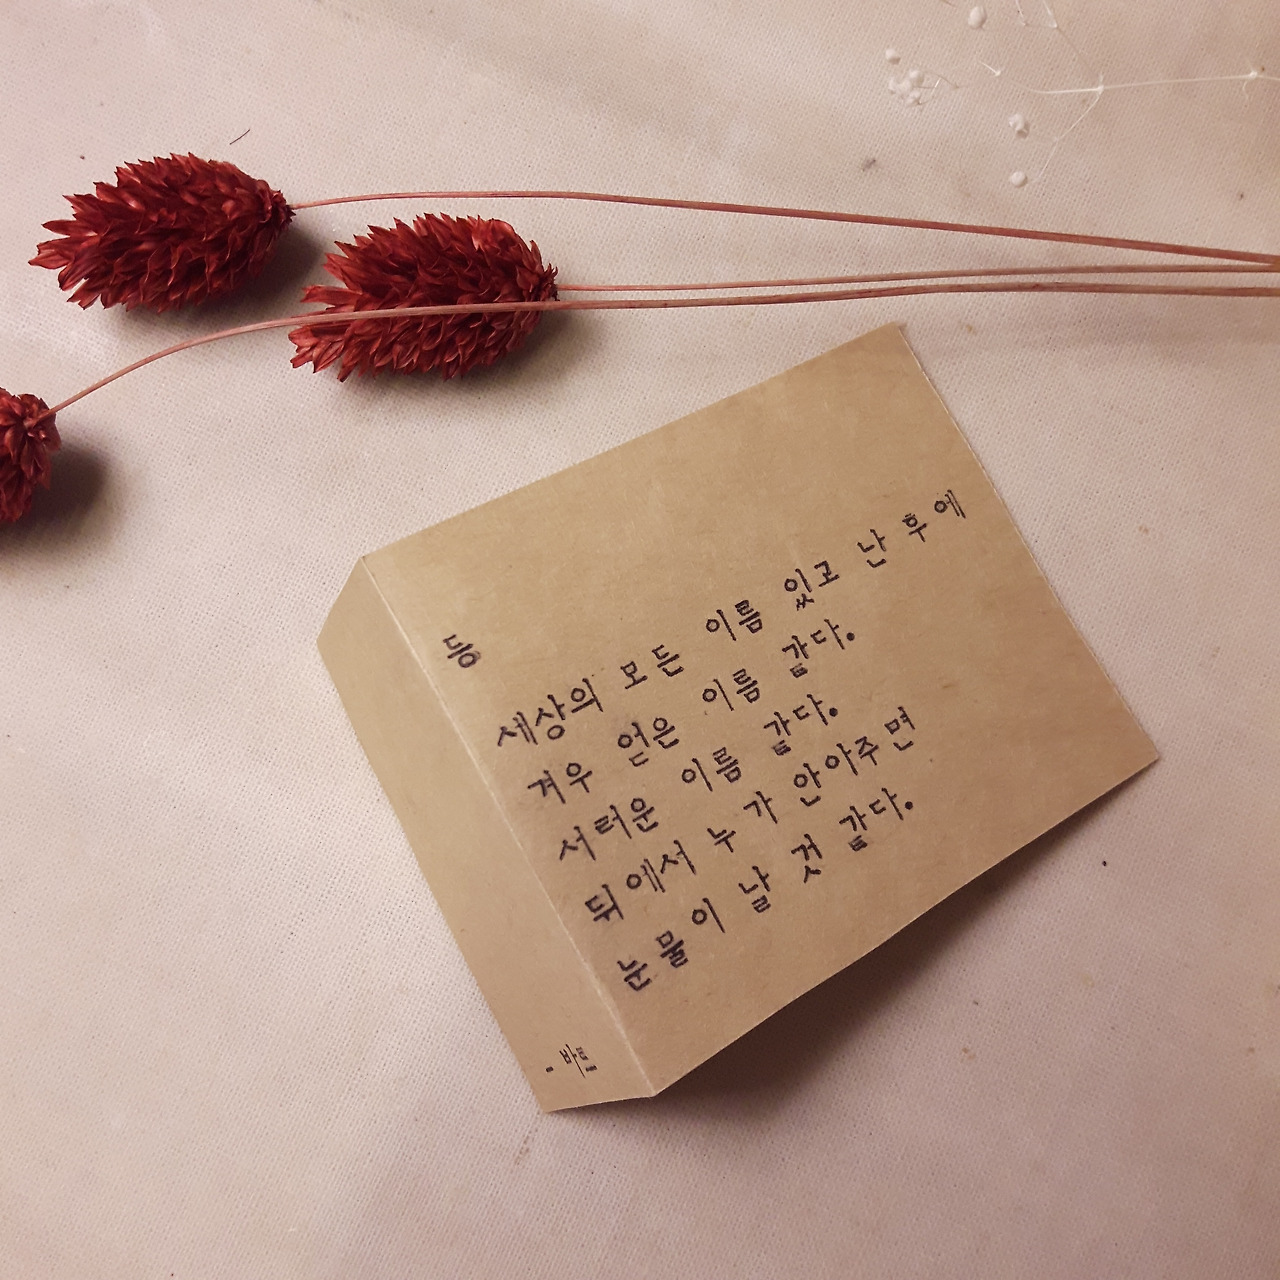 등
세상의 모든 이름 있고 난 후에
겨우 얻은 이름 같다.
서러운 이름 같다.
뒤에서 누가 안아주면
눈물이 날 것 같다.